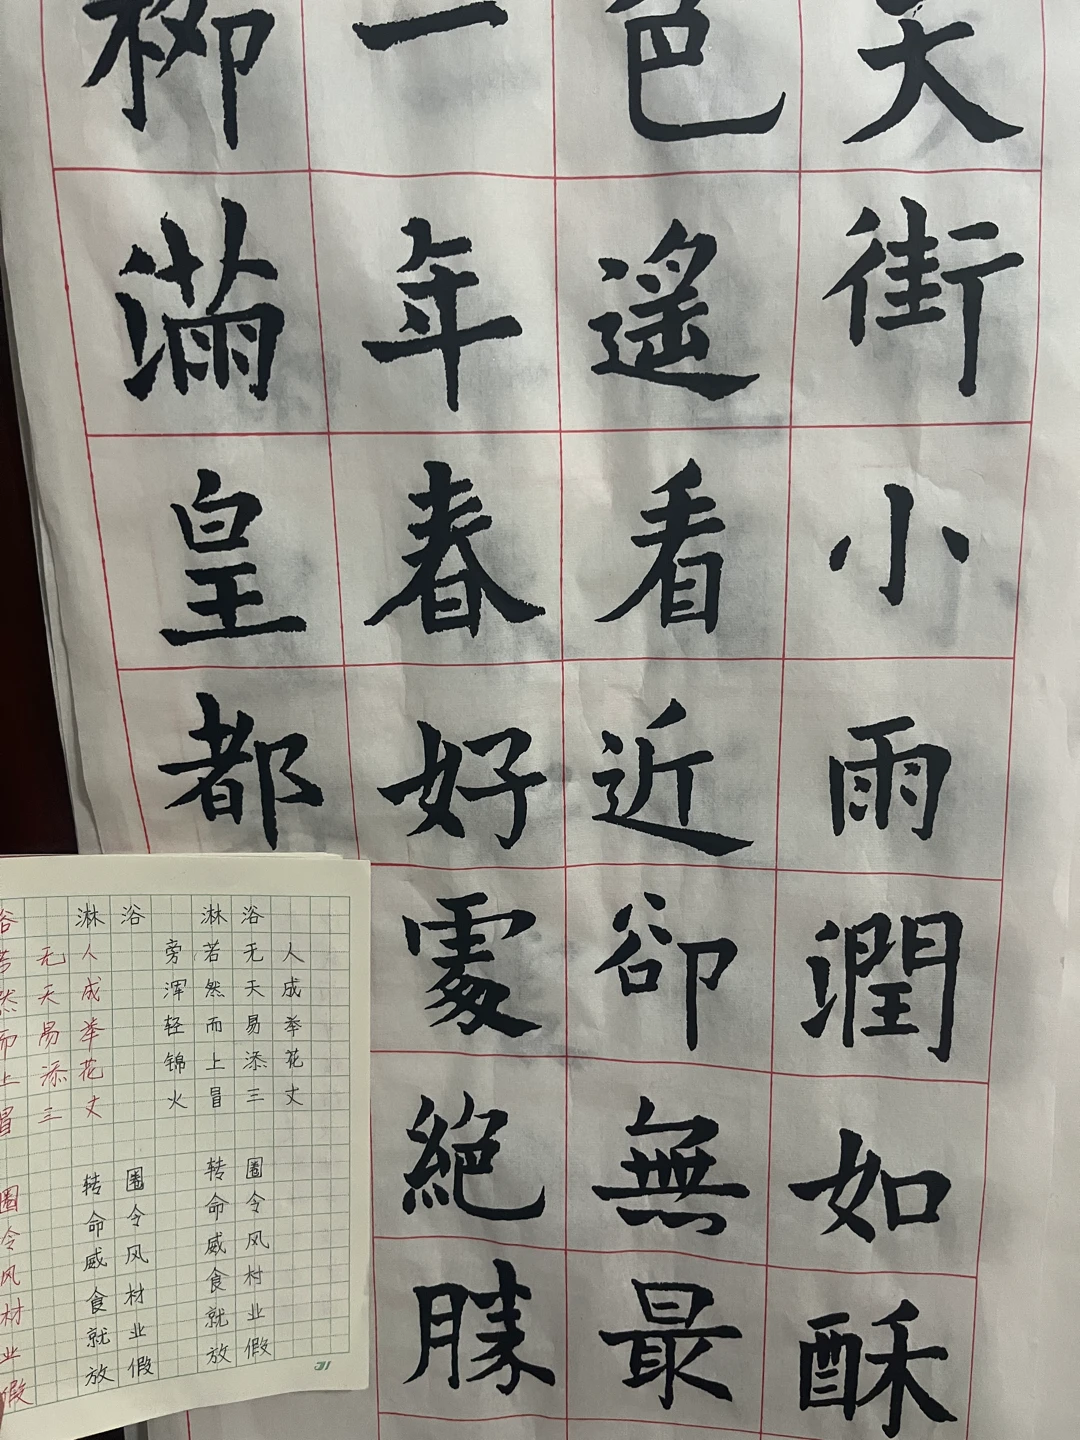 天街小雨潤如酥
色遙看近卻無最
一年春好處絕勝
柳滿皇都
淋浴
人成举花丈
无天易添三
若然而上冒
旁浑轻锦火
圈令风村业假
转命威食就放
淋浴
人成举花丈
无天易添三
圈令风材业假
转命威食就放
圈令风材业假